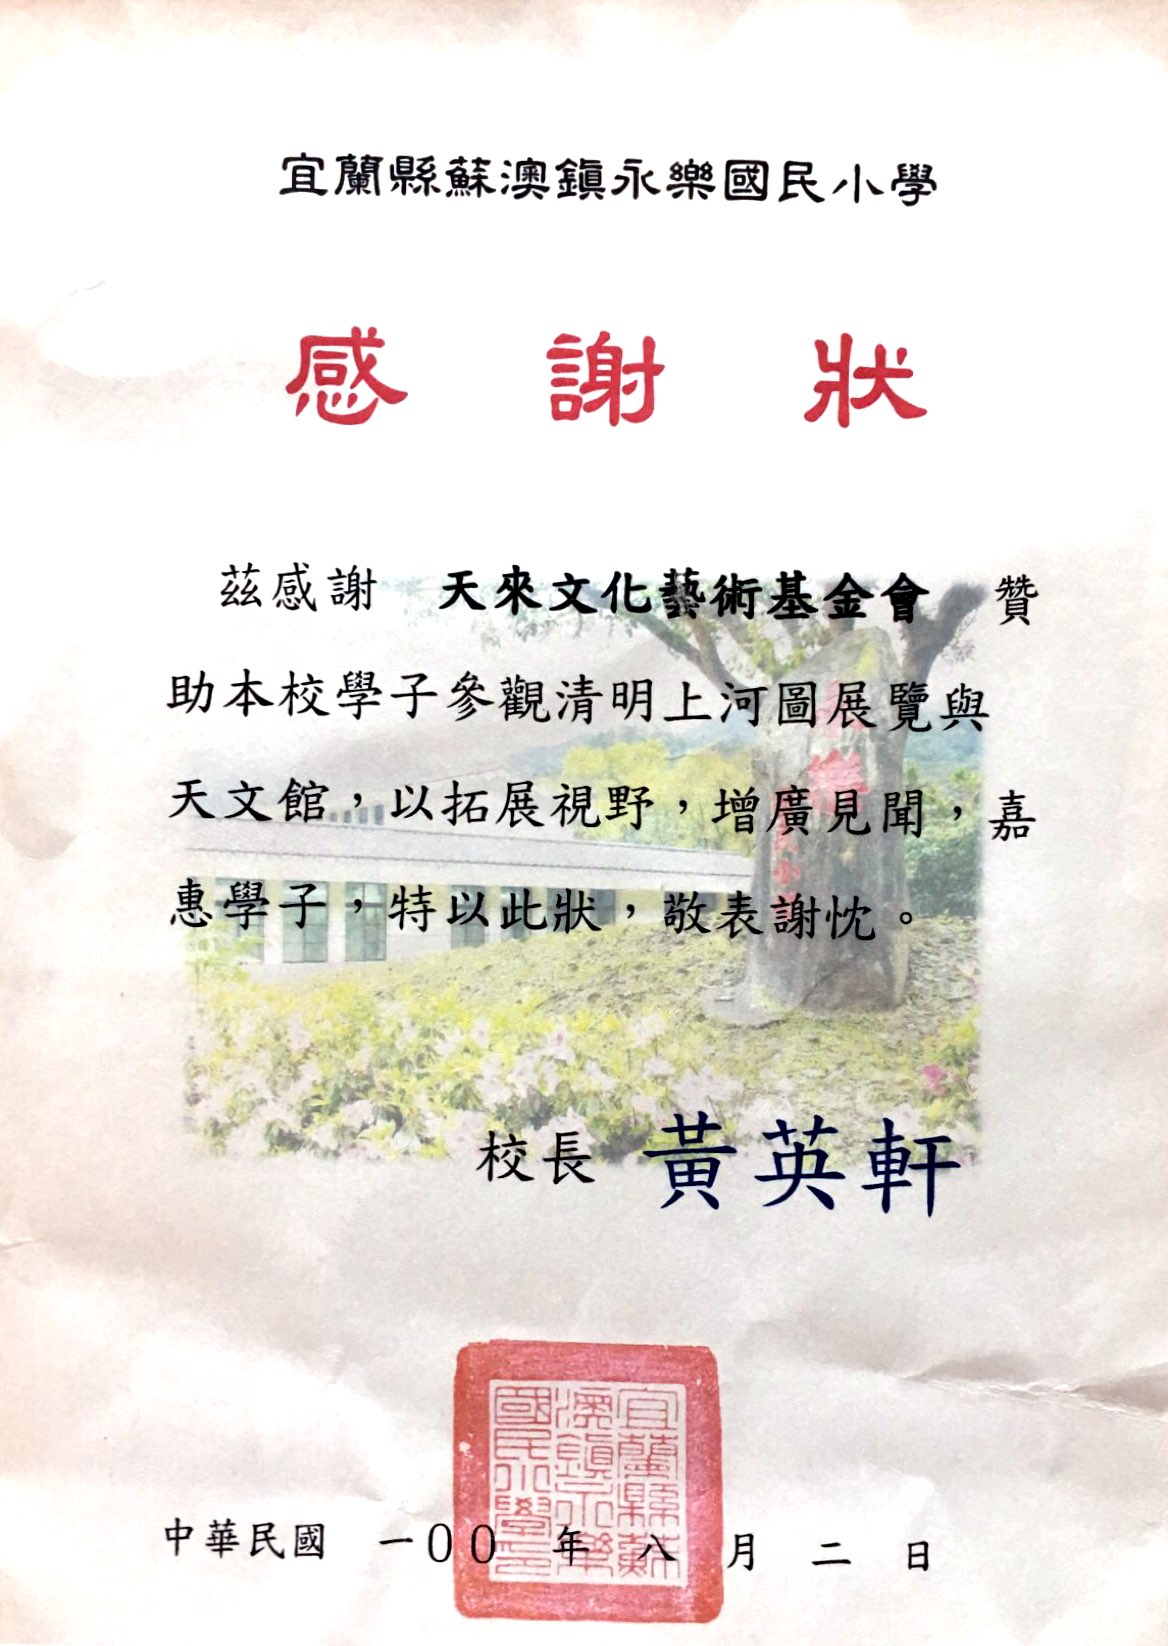 宜蘭縣蘇澳鎮永樂國民小學
感謝狀
茲感謝 天來文化藝術基金會 贊
助本校學子參觀清明上河圖展覽與
天文館，以拓展視野，增廣見聞，嘉
惠學子，特以此狀，敬表謝忱。
校長 黃英軒
宜蘭縣蘇
澳鎮永樂
國民小學
中華民國 一00 年 八 月 二 日